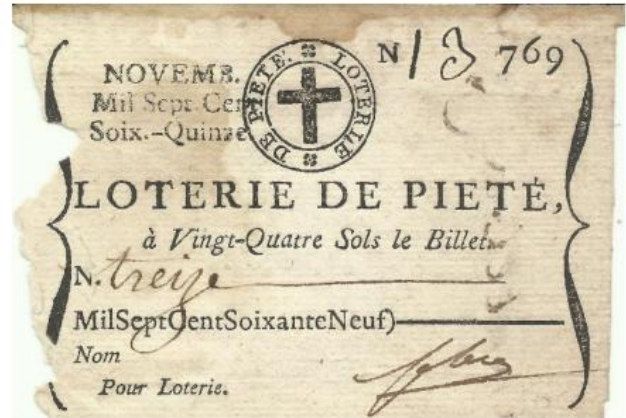 NOVEMB.
Mil Sept Cen
Soix.-Quinze
LOTERIE DE PIETE.
N 13 769
LOTERIE DE PIETÉ,
à Vingt-Quatre Sols le Billet.
N. treize
MilSeptCentSoixanteNeuf)
Nom
Pour Loterie.